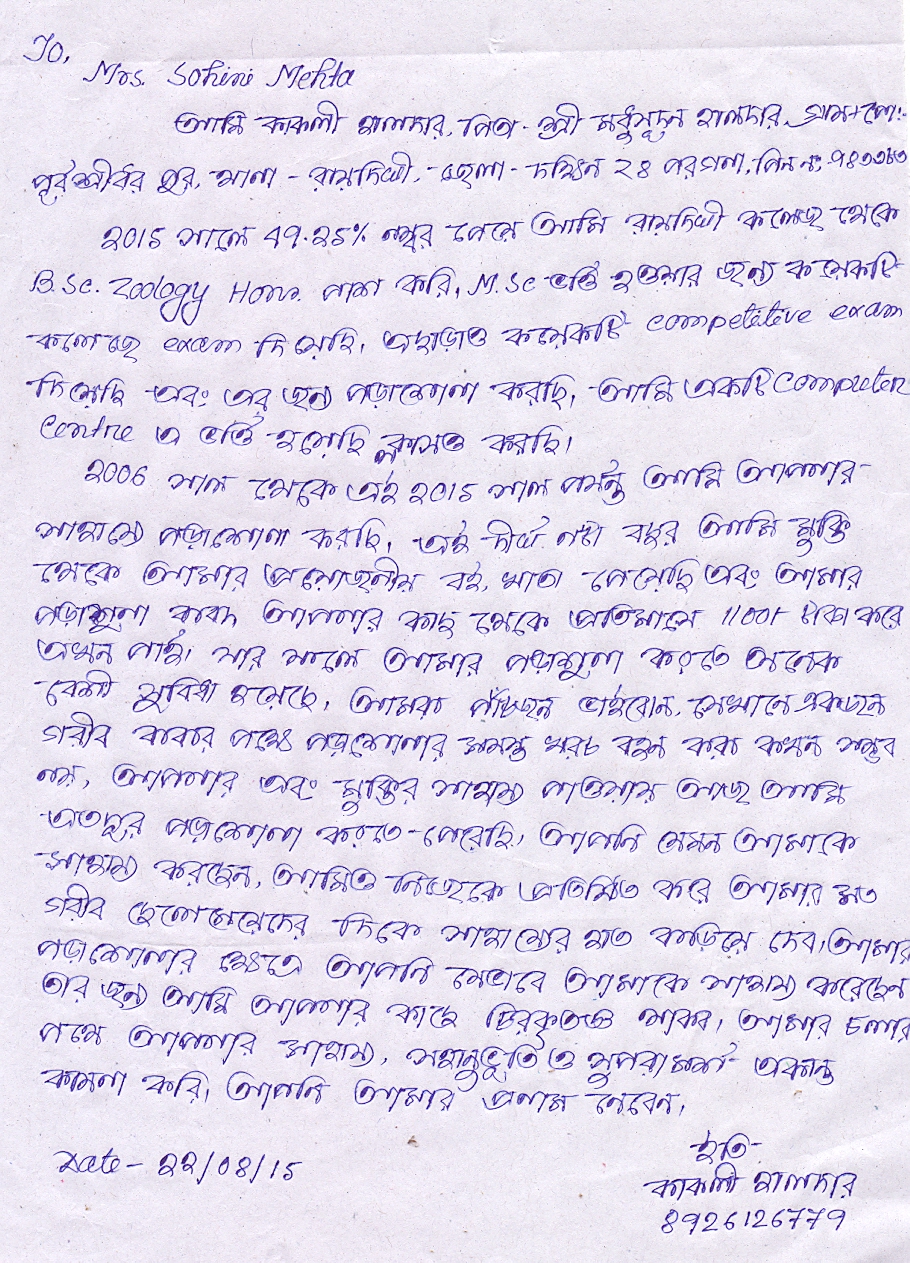 To,
Mrs. Sohini Mehta
আমি কাকলী হালদার, পিতা - শ্রী মধুসূদন হালদার, গ্রাম+পো:-
পূর্বশ্রীধর পুর, থানা - রায়দিঘী, - জেলা - দক্ষিন ২৪ পরগনা, পিন নং,
2015 সালে 49.25% নম্বর পেয়ে আমি রায়দিঘী কলেজ থেকে
B.Sc. Zoology Hons. পাশ করি, M.Sc ভর্তি হওয়ার জন্য কয়েকটি
কলেজে exam দিয়েছি, এছাড়াও কয়েকটি competetive exam
দিয়েছি এবং এর জন্য পড়াশোনা করছি, আমি একটি Computer
Centre এ ভর্তি হয়েছি ক্লাসও করছি।
2006 সাল থেকে এই 2015 সাল পর্যন্ত আমি আপনার
সাহায্যে পড়াশোনা করছি, এই দীর্ঘ ৯টা বছর আমি মুক্তি
থেকে আমার প্রয়োজনীয় বই, খাতা পেয়েছি এবং আমার
পড়াশুনা বাবদ আপনার কাছ থেকে প্রতিমাসে 1100/- টাকা করে
এখন পাই। যার ফলে আমার পড়াশুনা করতে অনেক
বেশী সুবিধা হয়েছে, আমরা পাঁচজন ভাইবোন, সেখানে একজন
গরীব বাবার পক্ষে পড়াশোনার সমস্ত খরচ বহন করা কখন সম্ভব
নয়, আপনার এবং মুক্তির সাহায্য পাওয়ায় আজ আমি
এতদূর পড়াশোনা করতে পেরেছি, আপনি যেমন আমাকে
সাহায্য করছেন, আমিও নিজেকে প্রতিষ্ঠিত করে আমার মত
গরীব ছেলেমেয়েদের দিকে সাহায্যের হাত বাড়িয়ে দেব, আমার
পড়াশোনার ক্ষেত্রে আপনি যেভাবে আমাকে সাহায্য করেছেন
তার জন্য আমি আপনার কাছে চিরকৃতজ্ঞ থাকব, আমার চলার
পথে আপনার সাহায্য, সহানুভূতি ও সুপরামর্শ একান্ত
কামনা করি, আপনি আমার প্রণাম নেবেন,
ইতি-
Date - 22/08/15
কাকলী হালদার
8926126779